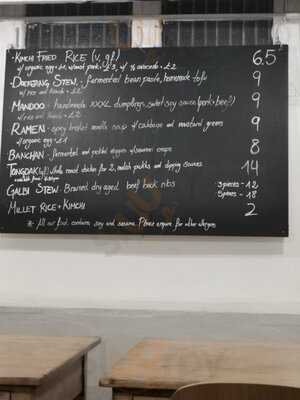 · Kimchi Fried Rice (v, gf) 6.5
w/ organic egg + £1, w/ roast pork + £3, w/ ½ avocado + £2
· Doenjang Stew - fermented bean paste, homemade tofu 9
w/ rice and kimchi + £2
Mandoo - handmade XXXL dumplings, sweet soy sauce (pork + beef) 9
w/ rice and kimchi + £2
Ramen - spicy broth noodle soup w/ cabbage and mustard greens 9
w/ organic egg + £1
Banchan - fermented and pickled veggies w/ seaweed crisps 8
Tongdak (gf) whole roast chicken for 2, radish pickles and dipping sauces 14
Galbi Stew. Braised dry aged beef back ribs 3 pieces - 12
5 pieces - 18
Millet Rice + Kimchi 2
* All our food contains soy and sesame. Please enquire for other allergens